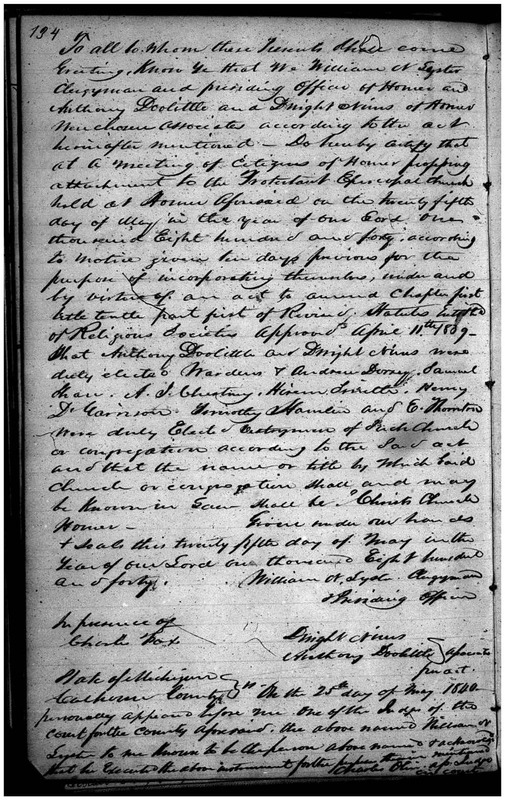 194
To all to whom these Presents shall come
Greeting, Know Ye that We William N Lyster
Clergyman and presiding Officer of Homer and
Anthony Doolittle and Dwight Nims of Homer
Associates according to the act
hereinafter mentioned - Do hereby certify that
at a meeting of Citizens of Homer
attachment to the Protestant Episcopal Church
held at Homer Aforesaid on the twenty fifth
day of May in the year of our Lord one
thousand Eight hundred and forty, according
to notice given ten days previous for the
purpose of incorporating themselves, under and
by virtue of an act to amend Chapter first
title tenth part first of Revised Statutes
of Religious Societies Approved April 11th 1839-
that Anthony Doolittle and Dwight Nims were
duly elected Wardens & Andrew Dorsey, Samuel
A. J. Chestney, Hiram Henry
D. Garrison Timothy Hamlin and E. Thornton
were duly Elected Vestrymen of Such Church
or congregation according to the Said act
and that the name or title by Which Said
Church or congregation Shall and may
be Known in Law Shall be "Christs Church
Homer - Given under our hands
& seals this twenty fifth day of May in the
Year of our Lord one thousand Eight hundred
and forty. William N Lyster Clergyman
& Presiding Officer
In presence of
Charles Fox
Dwight Nims
Anthony Doolittle Associates
State of Michigan
Calhoun County ss On the 25th day of May 1840
personally appeared before me one of the Judges of the
court for the County Aforesaid, the above named William N
Lyster to me Known to be the person above named & acknowledged
that he Executed the above instrument for the purposes therein mentioned